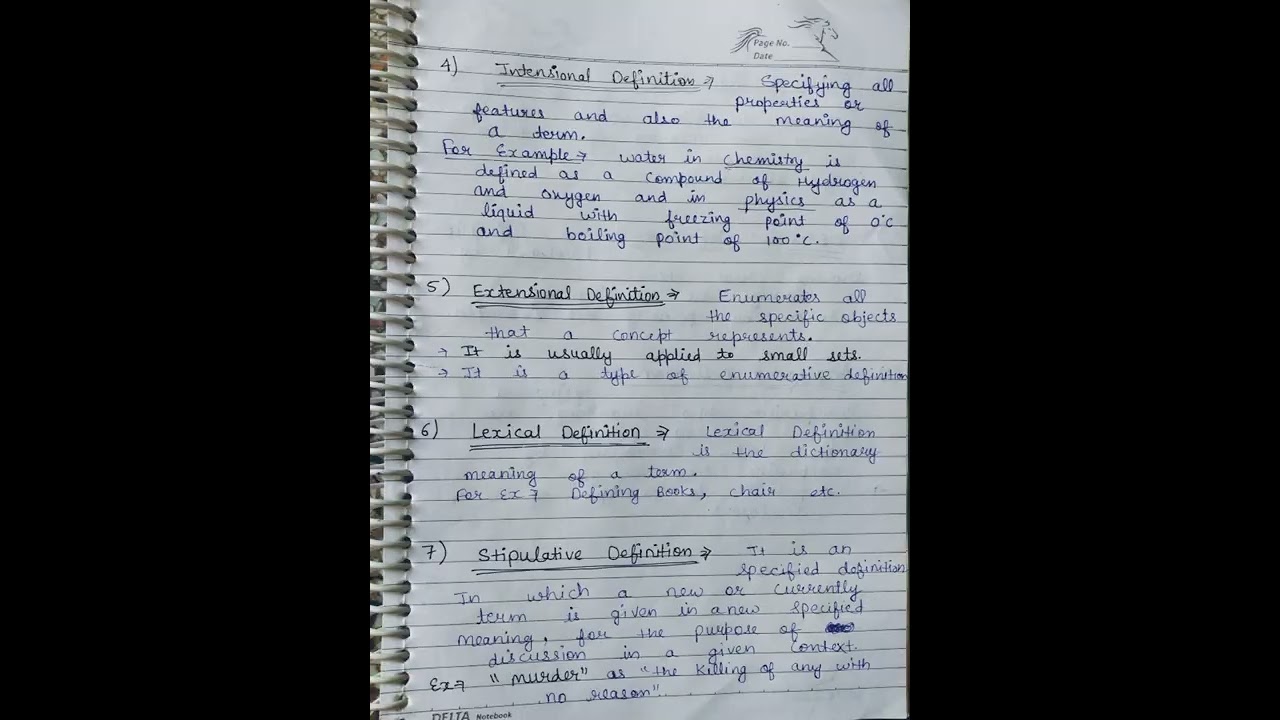 Page No.
Date
4) Intensional Definition → Specifying all
properties or
features and also the meaning of
a term.
For Example → water in chemistry is
defined as a compound of Hydrogen
and oxygen and in physics as a
liquid with freezing point of 0°c
and boiling point of 100°c.
5) Extensional Definition → Enumerates all
the specific objects
that a concept represents.
→ It is usually applied to small sets.
→ It is a type of enumerative definition
6) Lexical Definition → Lexical Definition
is the dictionary
meaning of a term.
For Ex → Defining Books, chair etc.
7) Stipulative Definition → It is an
specified definition
In which a new or currently
term is given in a new specified
meaning, for the purpose of
discussion in a given context.
Ex → "murder" as "the killing of any with
no reason".
DELTA Notebook